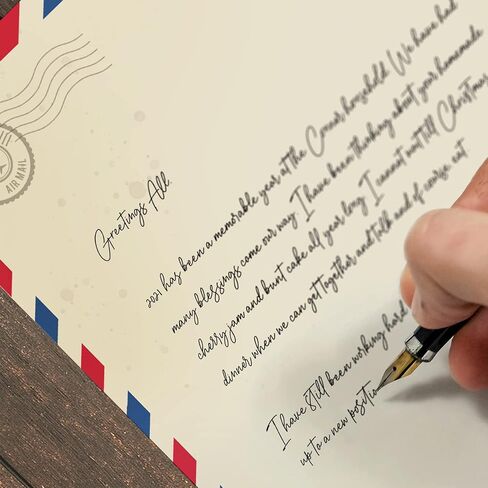 AIR MAIL
Greetings All
2021 has been a memorable year at the Conner household. We have had
many blessings come our way. I have been thinking about your homemade
cherry jam and bunt cake all year long. I cannot wait till Christmas
dinner when we can get together and talk and of course eat
I have still been working hard
up to a new positio